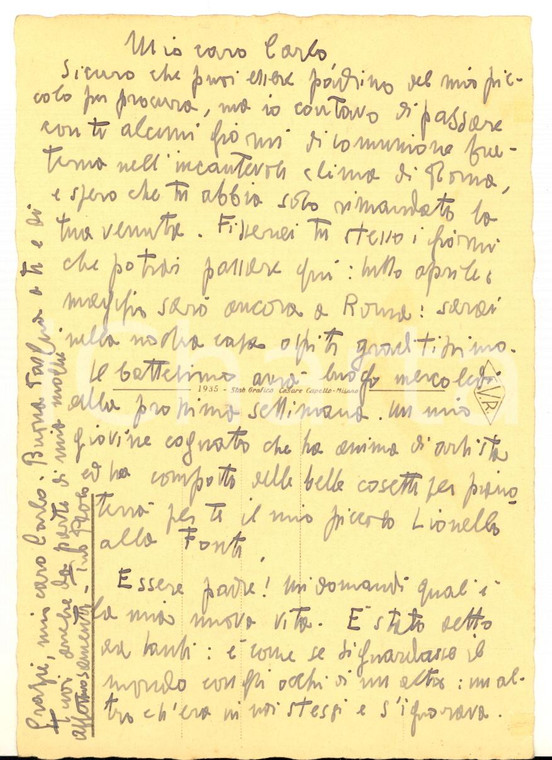 Mio caro Carlo
Sicuro che puoi essere padrino del mio pic-
colo per procura, ma io contavo di passare
con te alcuni giorni di comunione fra-
terna nell'incantevole clima di Roma,
e spero che tu abbia solo rimandato la
tua venuta. Fisserai tu stesso i giorni
che potrai passare qui: tutto aprile e
maggio sarò ancora a Roma: sarai
nella nostra casa ospite graditissimo.
Il battesimo avrà luogo mercoledì
1935 - Stab. Grafico Cesare Capello - Milano
VR
alla prossima settimana. Un mio
giovine cognato che ha anima di artista
ed ha composto delle belle cosette per piano
terrà per te il mio piccolo Lionello
alla Fonte.
Essere padre! Mi domandi qual è
la mia nuova vita. È stato detto
da tanti: è come se si guardasse il
mondo con gli occhi di un altro: un al-
tro ch'era in noi stessi e s'ignorava.
Grazie, mio caro Carlo. Buona Pasqua a te e ai
tuoi anche da parte di mia moglie
affettuosamente. tuo